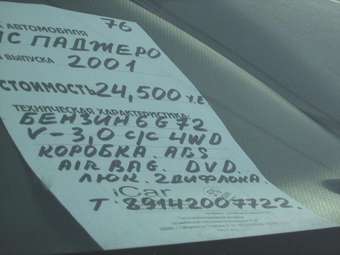 76
АВТОМОБИЛЯ
ИС ПАДЖЕРО
ВЫПУСКА 2001
СТОИМОСТЬ 24,500 У.Е
ТЕХНИЧЕСКАЯ ХАРАКТЕРИСТИКА
БЕНЗИН 6G72
V-3,0 С/С 4WD
КОРОБКА. ABS
AIR BAG. DVD.
ЛЮК. 2ДИФЛОКА.
iCar
Т 89142007722.